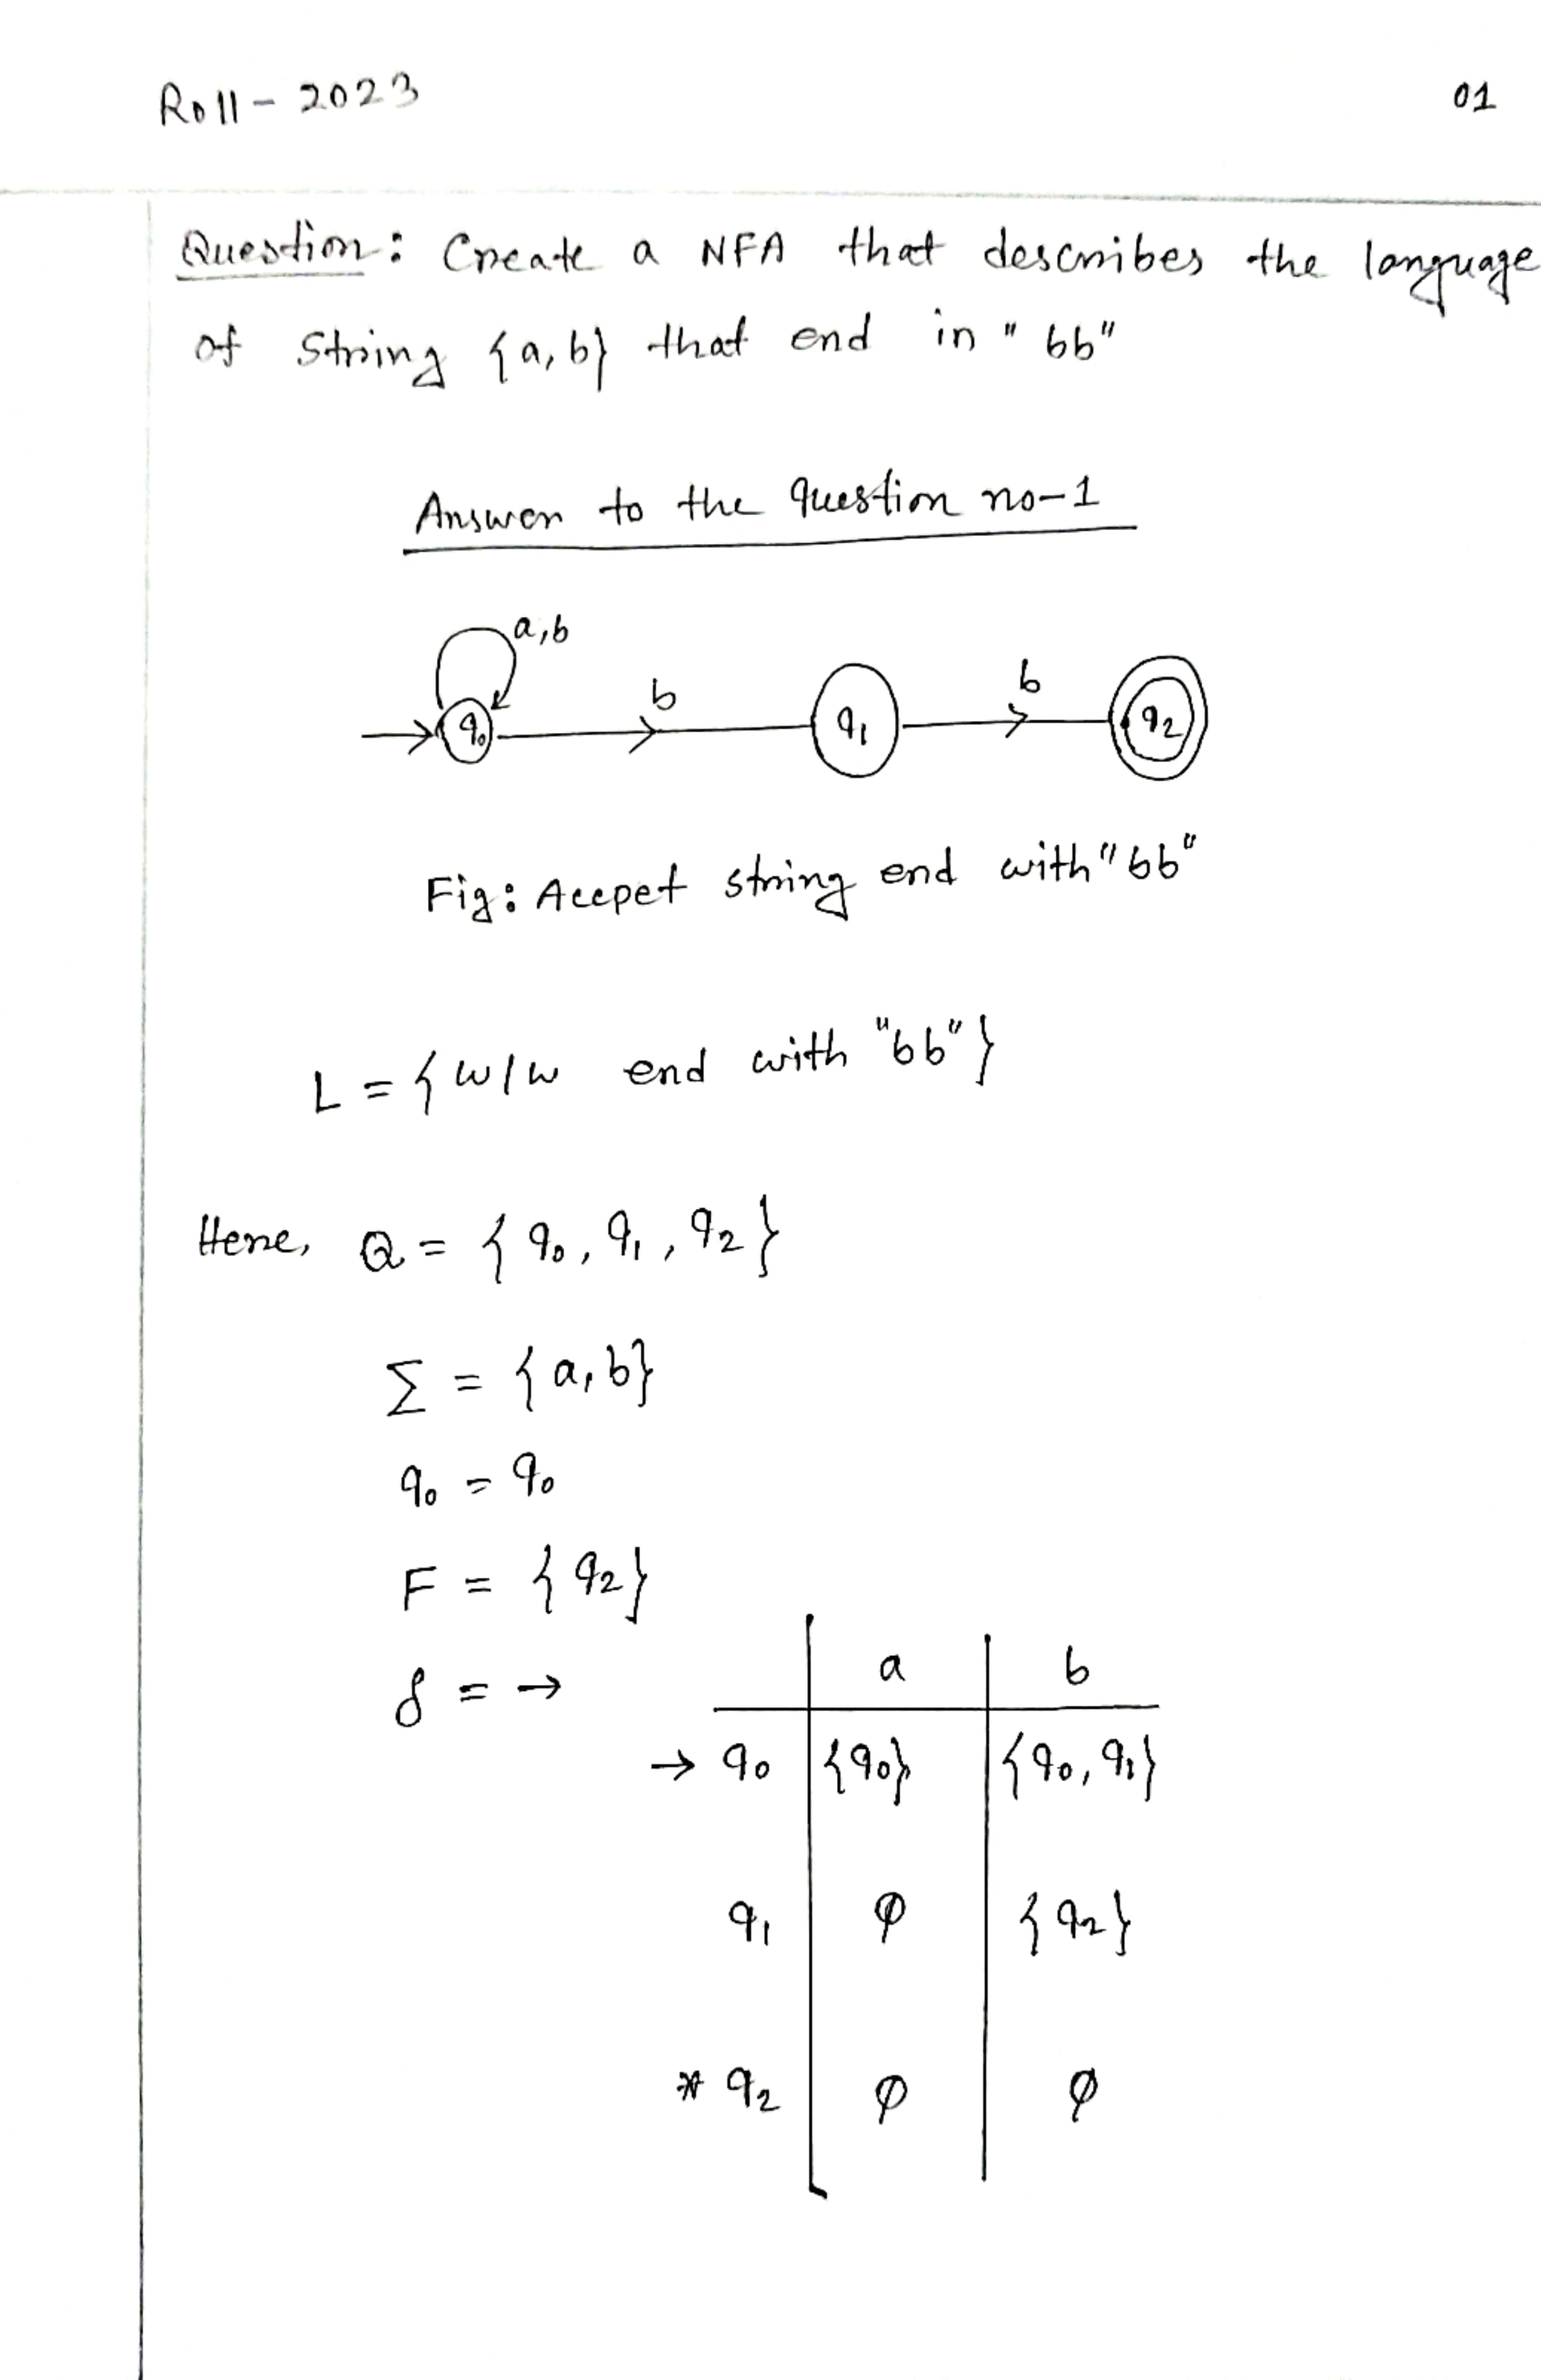 Roll - 2023
01
Question: Create a NFA that describes the language
of string {a,b} that end in "bb"
Answer to the question no-1
a,b
b
b
q0
q1
q2
Fig: Accpet string end with "bb"
L = {w/w end with "bb"}
Here, Q = {q0, q1, q2}
Σ = {a,b}
q0 = q0
F = {q2}
δ = →
a b
→ q0 {q0} {q0, q1}
q1 φ {q2}
* q2 φ φ